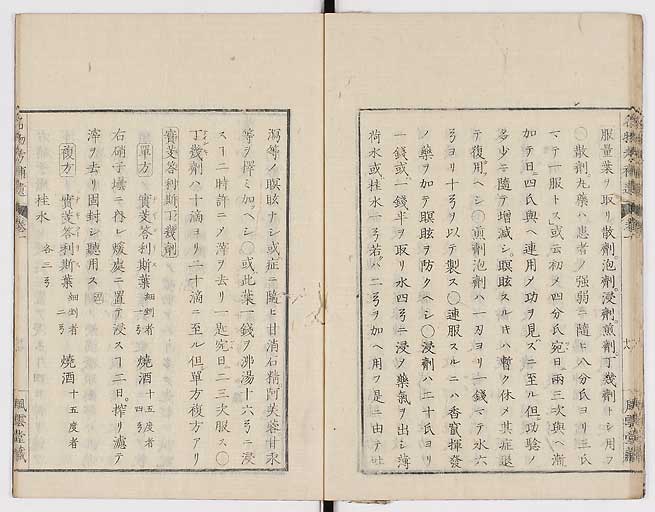 服量葉ヲ取リ散劑泡劑浸劑煎劑丁幾劑トシ用フ
○散劑丸藥ハ患者ノ强弱ニ隨ヒ八分氏ヨリ三氏
マテ一服トス或云初メ四分氏宛日ニ兩三次與ヘ漸
加テ日ニ四氏與ヘ連用ノ功ヲ見ズニ至ル但功驗ノ
多少ニ隨テ增減シ瞑眩スルキハ暫ク休メ其症退
テ復用ヘシ○煎劑泡劑ハ一刄ヨリ一錢マテ水六
ヨリ十ヲ以テ製ス○連服スルニハ香竄揮發
ノ藥ヲ加テ瞑眩ヲ防クヘシ○浸劑ハ二十氏ヨリ
一錢或一錢半ヲ取リ水四ニ浸ノ藥氣ヲ出シ薄
荷水或桂水一若ハ二ヲ加ヘ用フ是ニ由テ吐
瀉等ノ瞑眩ナシ或症ニ隨ヒ甘消石精阿芙蓉甘水
等ヲ擇ミ加ヘシ○或此葉一錢ヲ沸湯十六ニ浸
スヿ二時許ニノ滓ヲ去リ一匙宛日ニ二三次服ス○
丁幾劑ハ十滴ヨリ二十滴ニ至ル但單方複方アリ
實芰答利斯丁幾劑
單方 實芰答利斯葉 細剉者 一 燒酒 十五度者 四
右硝子壜ニ容レ煖處ニ置テ浸スヿ二日搾リ濾テ
滓ヲ去リ固封シ聽用ス
複方 實芰答利斯葉 細剉者 二 燒酒 十五度者
桂水 各二
風雲堂藏
風雲堂藏